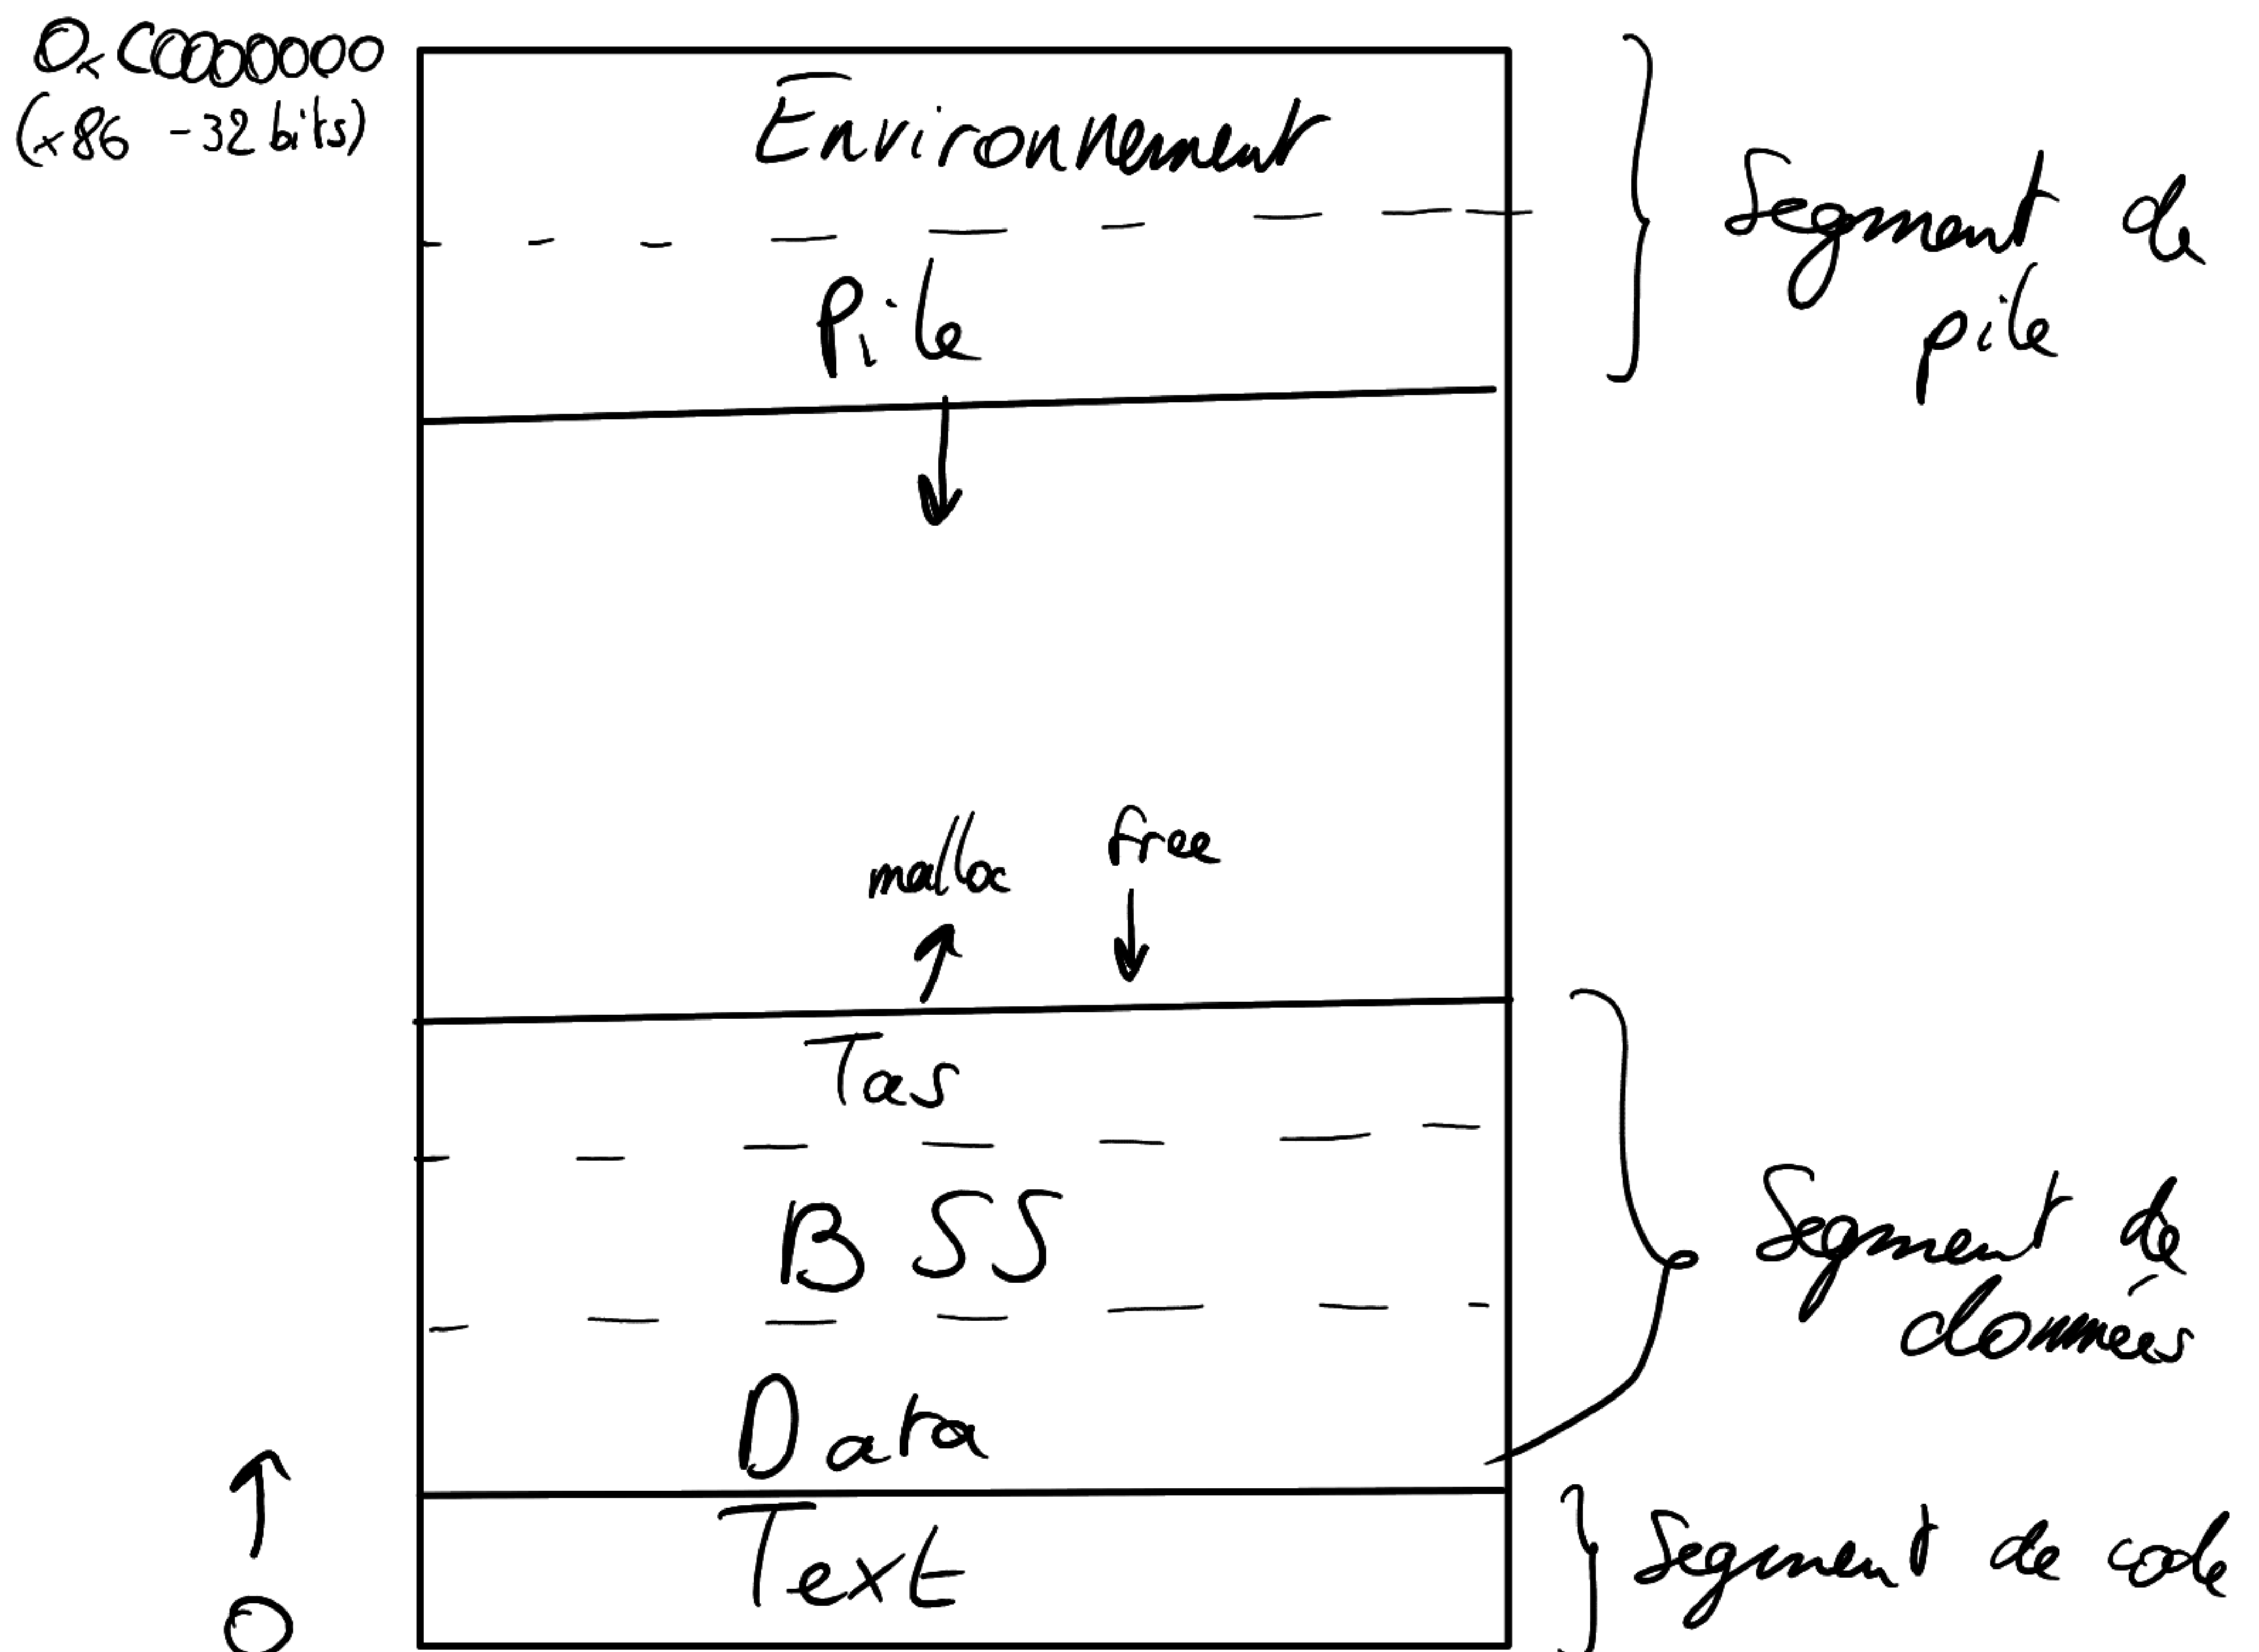 0xC0000000
(x86 - 32 bits)
Environnement
Pile
Segment de
pile
malloc
free
Tas
BSS
Data
Segment de
données
Text
Segment de code
0